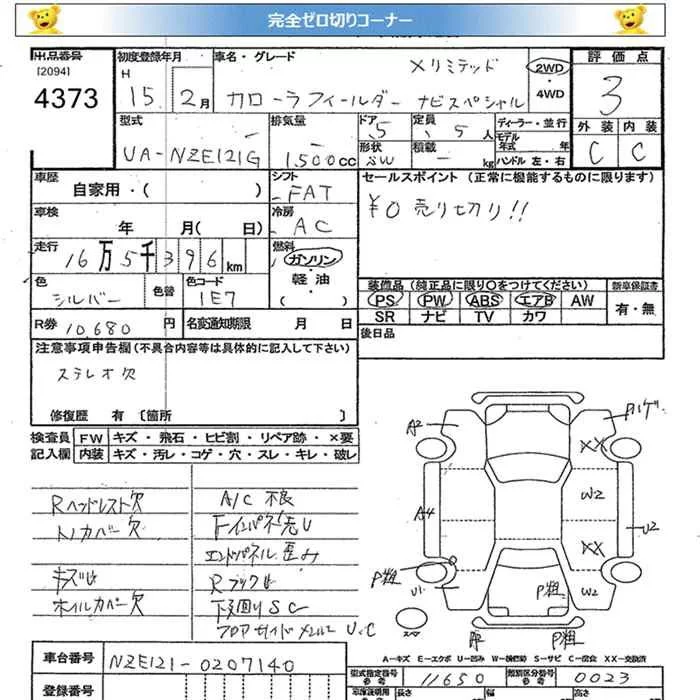 完全ゼロ切りコーナー
出品番号
[2094]
4373
初度登録年月
H
15年 2月
車名・グレード
Xリミテッド
カローラフィールダー ナビスペシャル
2WD
・4WD
評価点
3
外装 内装
C C
型式
UA-NZE121G
排気量
1,500cc
ドア 5
形状 SW
定員 5人
積載 - kg
ディーラー・並行
モデル年式 年
ハンドル 左・右
車歴
自家用・( )
シフト
FAT
セールスポイント (正常に機能するものに限ります)
¥0 売り切り!!
車検
年 月( 日)
冷房
AC
走行
16万5千396km
燃料
ガソリン
・
軽油
( )
色
シルバー
色替
色コード
1E7
装備品 (純正品に限り○をつけてください)
新車保証書
PS PW ABS エアB AW
有・無
SR ナビ TV カワ
R券 10,680円
名変通知期限 月 日
後日品
注意事項申告欄 (不具合内容等は具体的に記入して下さい)
ステレオ欠
修復歴 有 〔箇所 〕
検査員記入欄
FW キズ・飛石・ヒビ割・リペア跡・×要
内装 キズ・汚レ・コゲ・穴・スレ・キレ・破レ
Rヘッドレスト欠
A/C 不良
トノカバー欠
エンドパネル歪み
ホイルカバー欠
下廻りSC
A2
ハゲ
XX
W2
A4
U2
XX
P粗
U1
W2
P粗
P粗
スペア
A-キズ E-エクボ U-凹み W-補修跡 S-サビ C-腐食 XX-交換済
車台番号
NZE121-0207140
登録番号
型式指定番号
参考
11650
類別区分番号
参考
0023
車検証明用
参考
長さ
幅
高さ